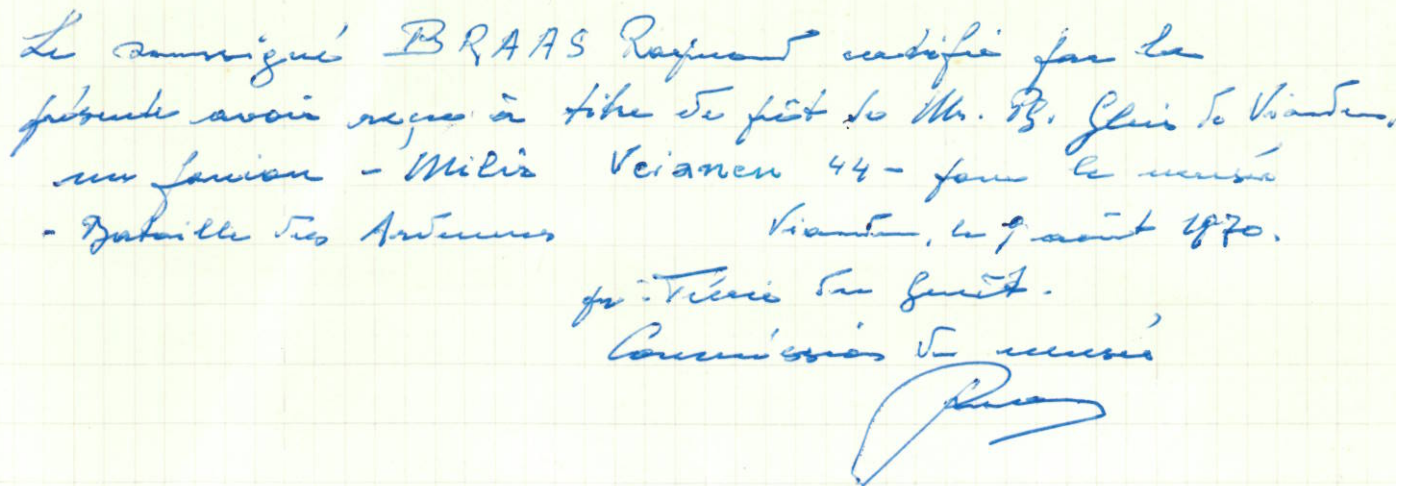 Le soussigné BRAAS Raymond certifie par la
présente avoir reçu à titre de prêt de Mr. B. de Vianden,
un fanion - Miliz Veianen 44 - pour le musée
- Bataille des Ardennes Vianden, le 9 août 1970.
du
Commission du musée